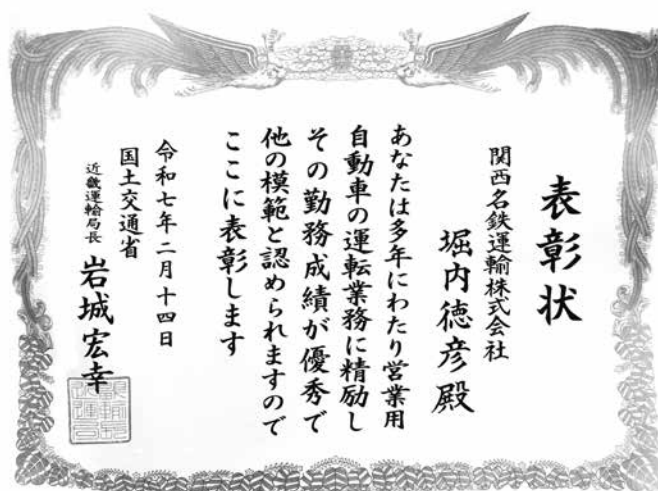 表彰状
関西名鉄運輸株式会社
堀内徳彦殿
あなたは多年にわたり営業用
自動車の運転業務に精励し
その勤務成績が優秀で
他の模範と認められますので
ここに表彰します
令和七年二月十四日
国土交通省
近畿運輸局長 岩城宏幸